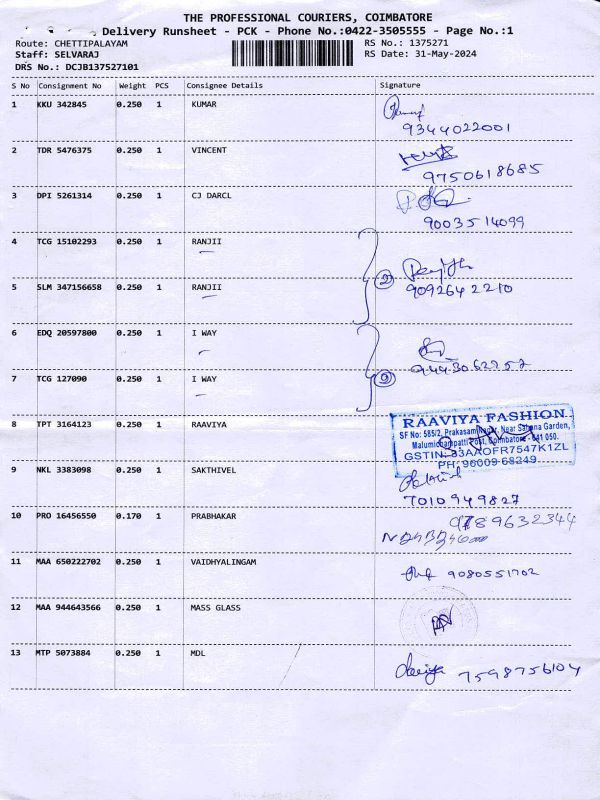 THE PROFESSIONAL COURIERS, COIMBATORE
Delivery Runsheet - PCK - Phone No.:0422-3505555 - Page No.:1
Route: CHETTIPALAYAM RS No.: 1375271
Staff: SELVARAJ RS Date: 31-May-2024
DRS No.: DCJB137527101
S No Consignment No Weight PCS Consignee Details Signature
1 KKU 342845 0.250 1 KUMAR
9344022001
2 TDR 5476375 0.250 1 VINCENT
9750618685
3 DPI 5261314 0.250 1 CJ DARCL
9003514099
4 TCG 15102293 0.250 1 RANJII
2
5 SLM 347156658 0.250 1 RANJII
9092642210
6 EDQ 20597800 0.250 1 I WAY
9443062752
7 TCG 127090 0.250 1 I WAY
8 TPT 3164123 0.250 1 RAAVIYA
RAAVIYA FASHION
SF No: 585/2, Prakasam Nagar, Near Sahana Garden,
Malumichampatti Post, Coimbatore - 641 050.
GSTIN: 33AAOFR7547K1ZL
PH: 96009 68249
9 NKL 3383098 0.250 1 SAKTHIVEL
7010949827
10 PRO 16456550 0.170 1 PRABHAKAR
9789632344
11 MAA 650222702 0.250 1 VAIDHYALINGAM
9080551702
12 MAA 944643566 0.250 1 MASS GLASS
13 MTP 5073884 0.250 1 MDL
7598756104